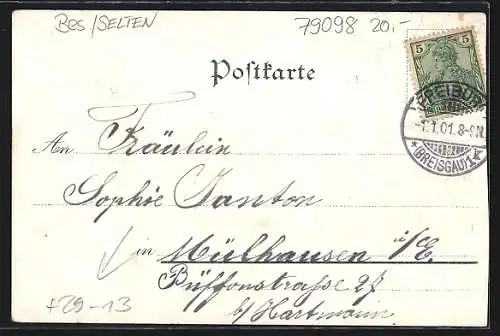 Bes/SELTEN
79098 20,-
5 5
Postkarte
FREIBURG
-1.1.01.8-9N.
*(BREISGAU)1*
An Fräulein
Sophie Janton
in Mülhausen i/E.
Büffonstraße 27
b/ Hartmann
+29-13